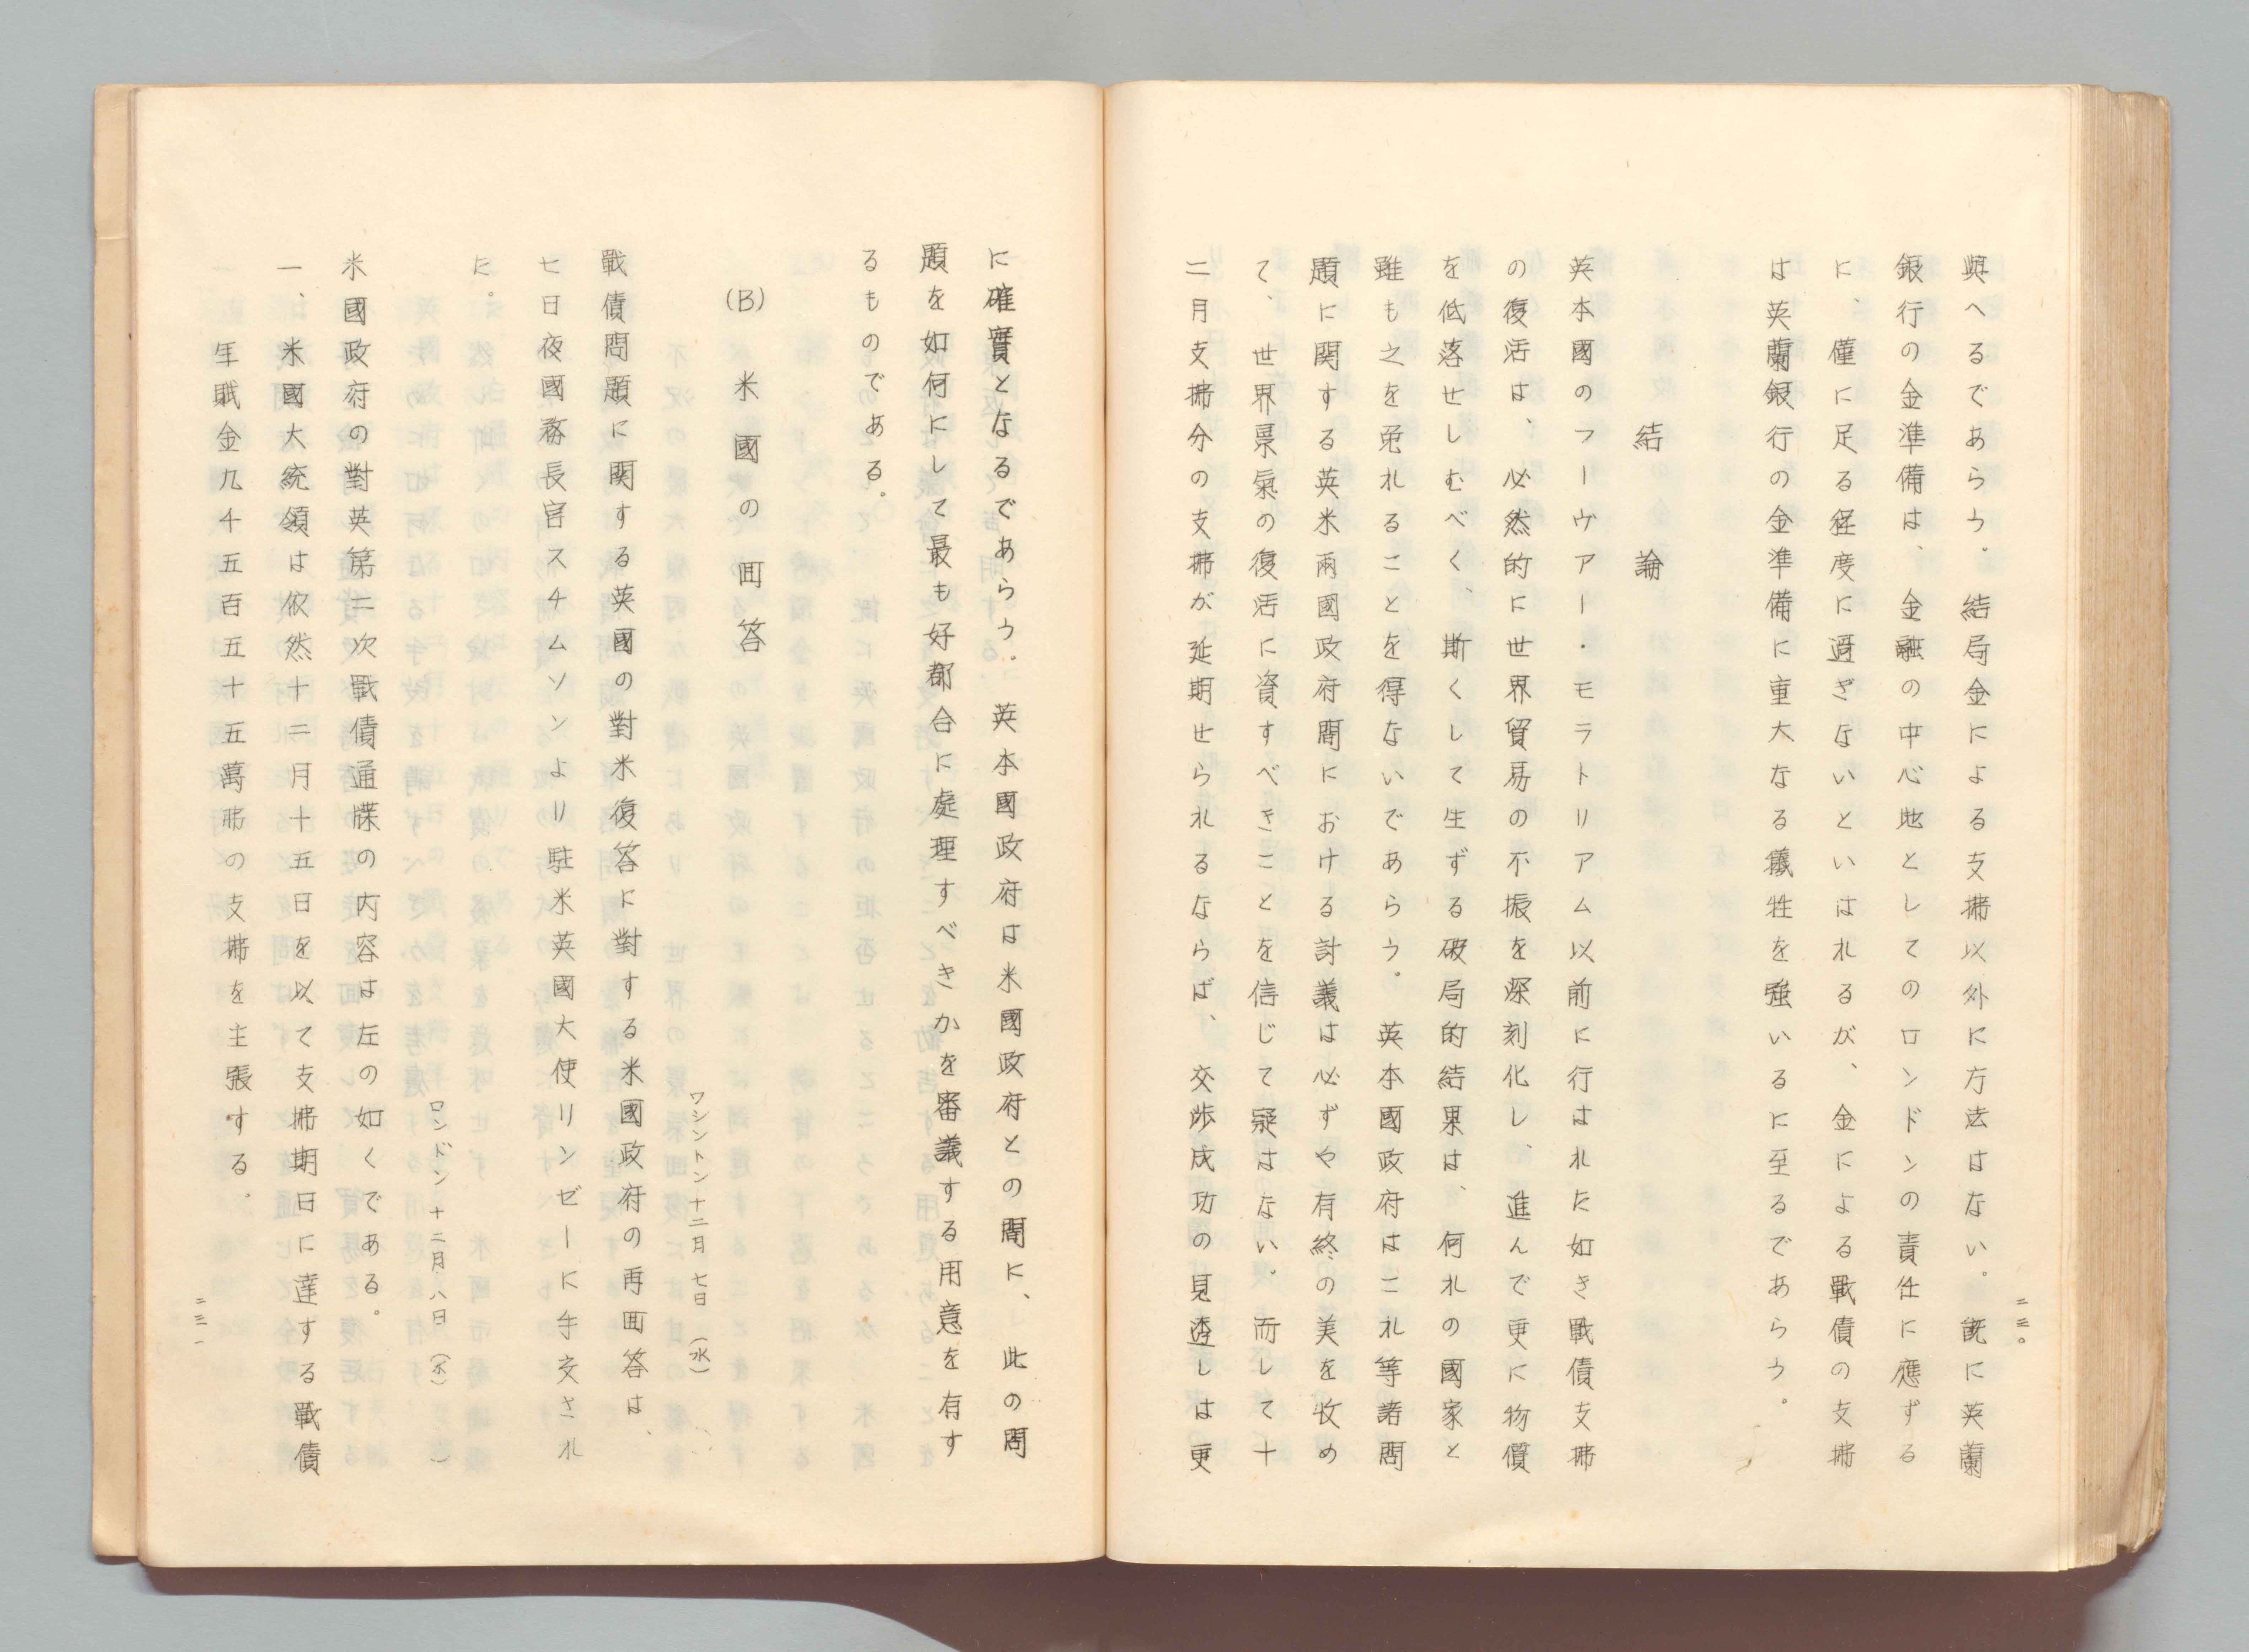 二三〇
與へるであらう。結局金による支拂以外に方法はない。既に英蘭
銀行の金準備は、金融の中心地としてのロンドンの責任に應ずる
に、僅に足る程度に過ぎないといはれるが、金による戰債の支拂
は英蘭銀行の金準備に重大なる犠牲を強いるに至るであらう。
結論
英本國のフーヴアー・モラトリアム以前に行はれた如き戰債支拂
の復活は、必然的に世界貿易の不振を深刻化し、進んで更に物價
を低落せしむべく、斯くして生ずる破局的結果は、何れの國家と
雖も之を免れることを得ないであらう。英本國政府はこれ等諸問
題に関する英米兩國政府間における討議は必ずや有終の美を收め
て、世界景氣の復活に資すべきことを信じて疑はない。而して十
二月支拂分の支拂が延期せられるならば、交渉成功の見透しは更
に確實となるであらう。英本國政府は米國政府との間に、此の問
題を如何にして最も好都合に處理すべきかを審議する用意を有す
るものである。
(B) 米國の囘答
ワシントン十二月七日(水)
戰債問題に関する英國の對米復答に對する米國政府の再囘答は、
七日夜國務長官スチムソンより駐米英國大使リンゼーに手交され
た。
ロンドン十二月八日(木)
米國政府の對英第二次戰債通牒の内容は左の如くである。
一、米國大統領は依然十二月十五日を以て支拂期日に達する戰債
年賦金九千五百五十五萬弗の支拂を主張する。
二三一